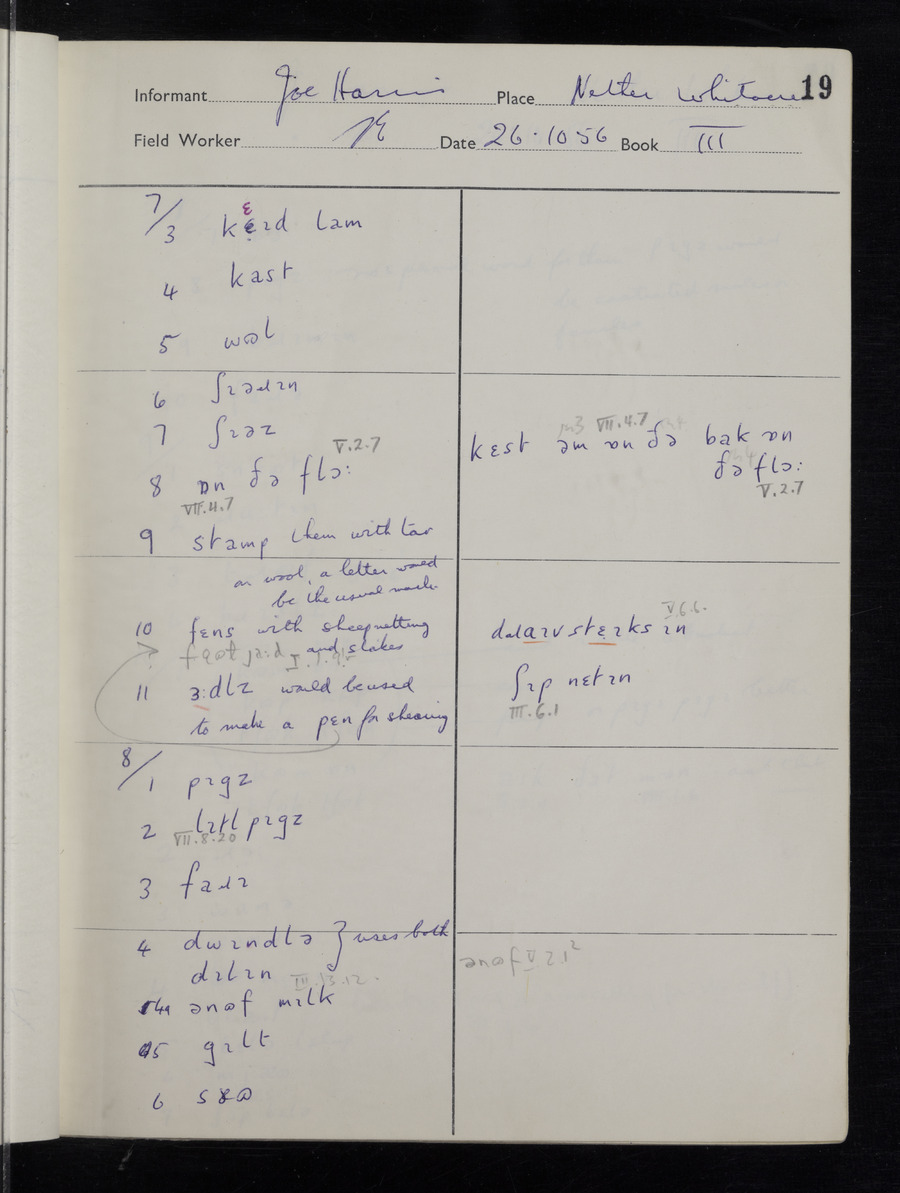 19
Informant Joe Harris Place Nether Whitacre
Field Worker Date 26·10·56 Book III
7/3 kɛɪd lam
ɛ
4 kast
5 wɷl
6 ʃɪəɹɪn
7 ʃɪəz
V.2.7
8 ɒn ðə flɔ:
VII.4.7
9 stamp them with tar
on wool, a letter would
be the usual mark
10 fens with sheepnetting
and stakes
11 ɜ:dlz would be used
to make a pen for shearing
8/1 pɪgz
2 lɪtl pɪgz
VII.8.20
3 faɹɪ
4 dwɪndlə } uses both
dɪlɪn
III.13.12.
4a ənɷf mɪlk
5 gɪlt
6
VII.4.7
kɛst əm ɒn ðə bak ɒn
ðə flɔ:
V.2.7
V.6.6.
stɛɪks ɪn
ʃɪp nɛtɪn
III.6.1
ənɷf